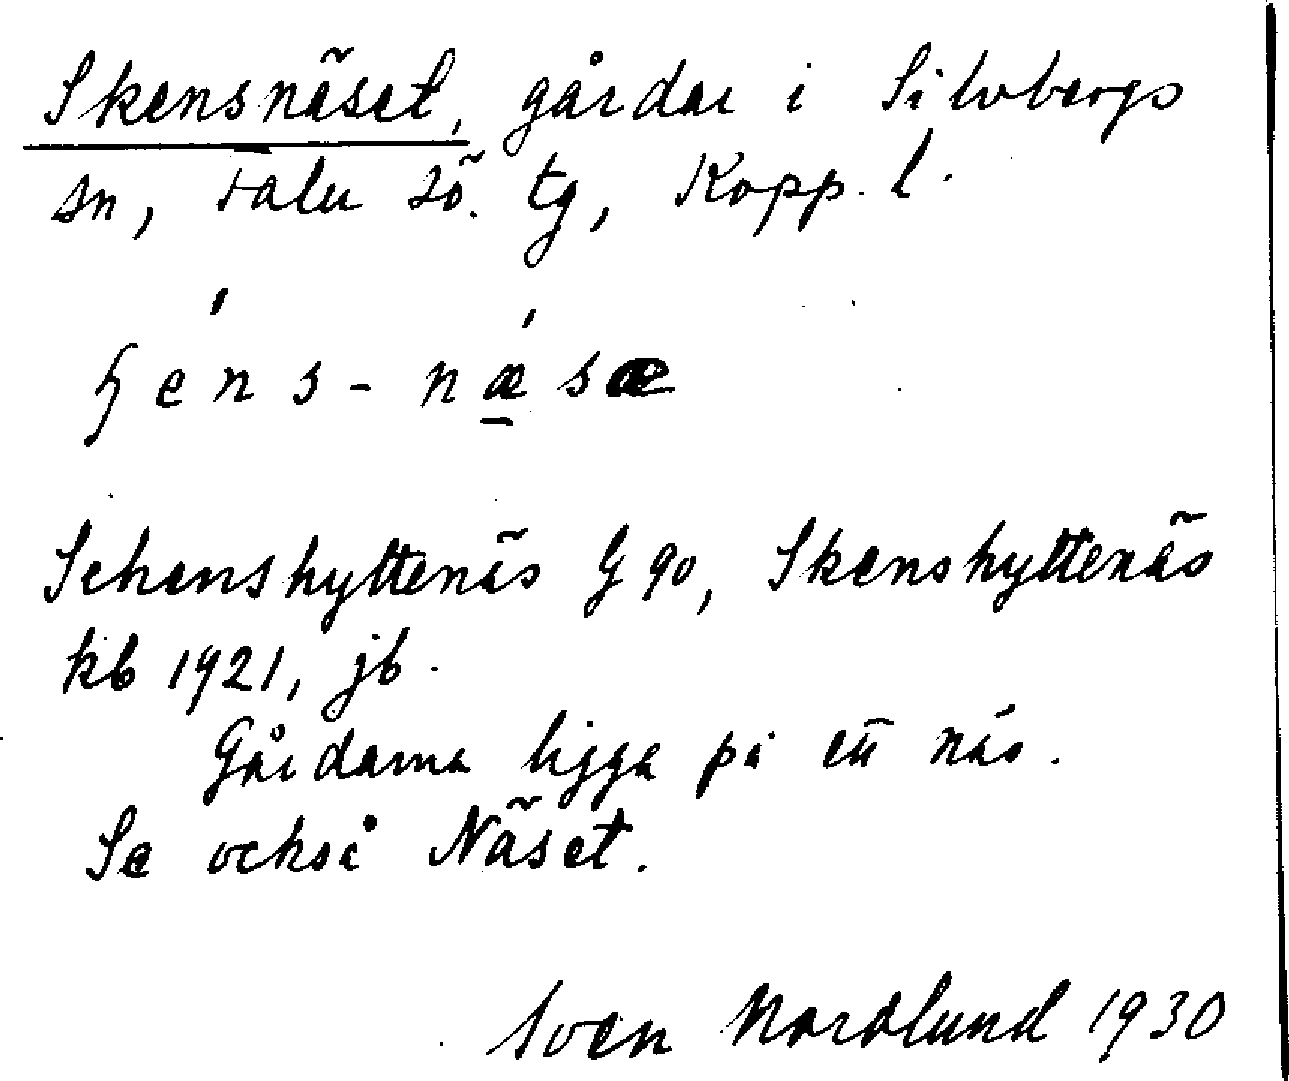 Skensnäset, gårdar i Silvbergs
sn, Falu sö. tg, Kopp. l.
ɧens-næsæ
Schenshyttenäs G 90, Skenshyttenäs
kb 1921, jb.
Gårdarna ligga på ett näs.
Se också Näset.
Sven Nordlund 1930